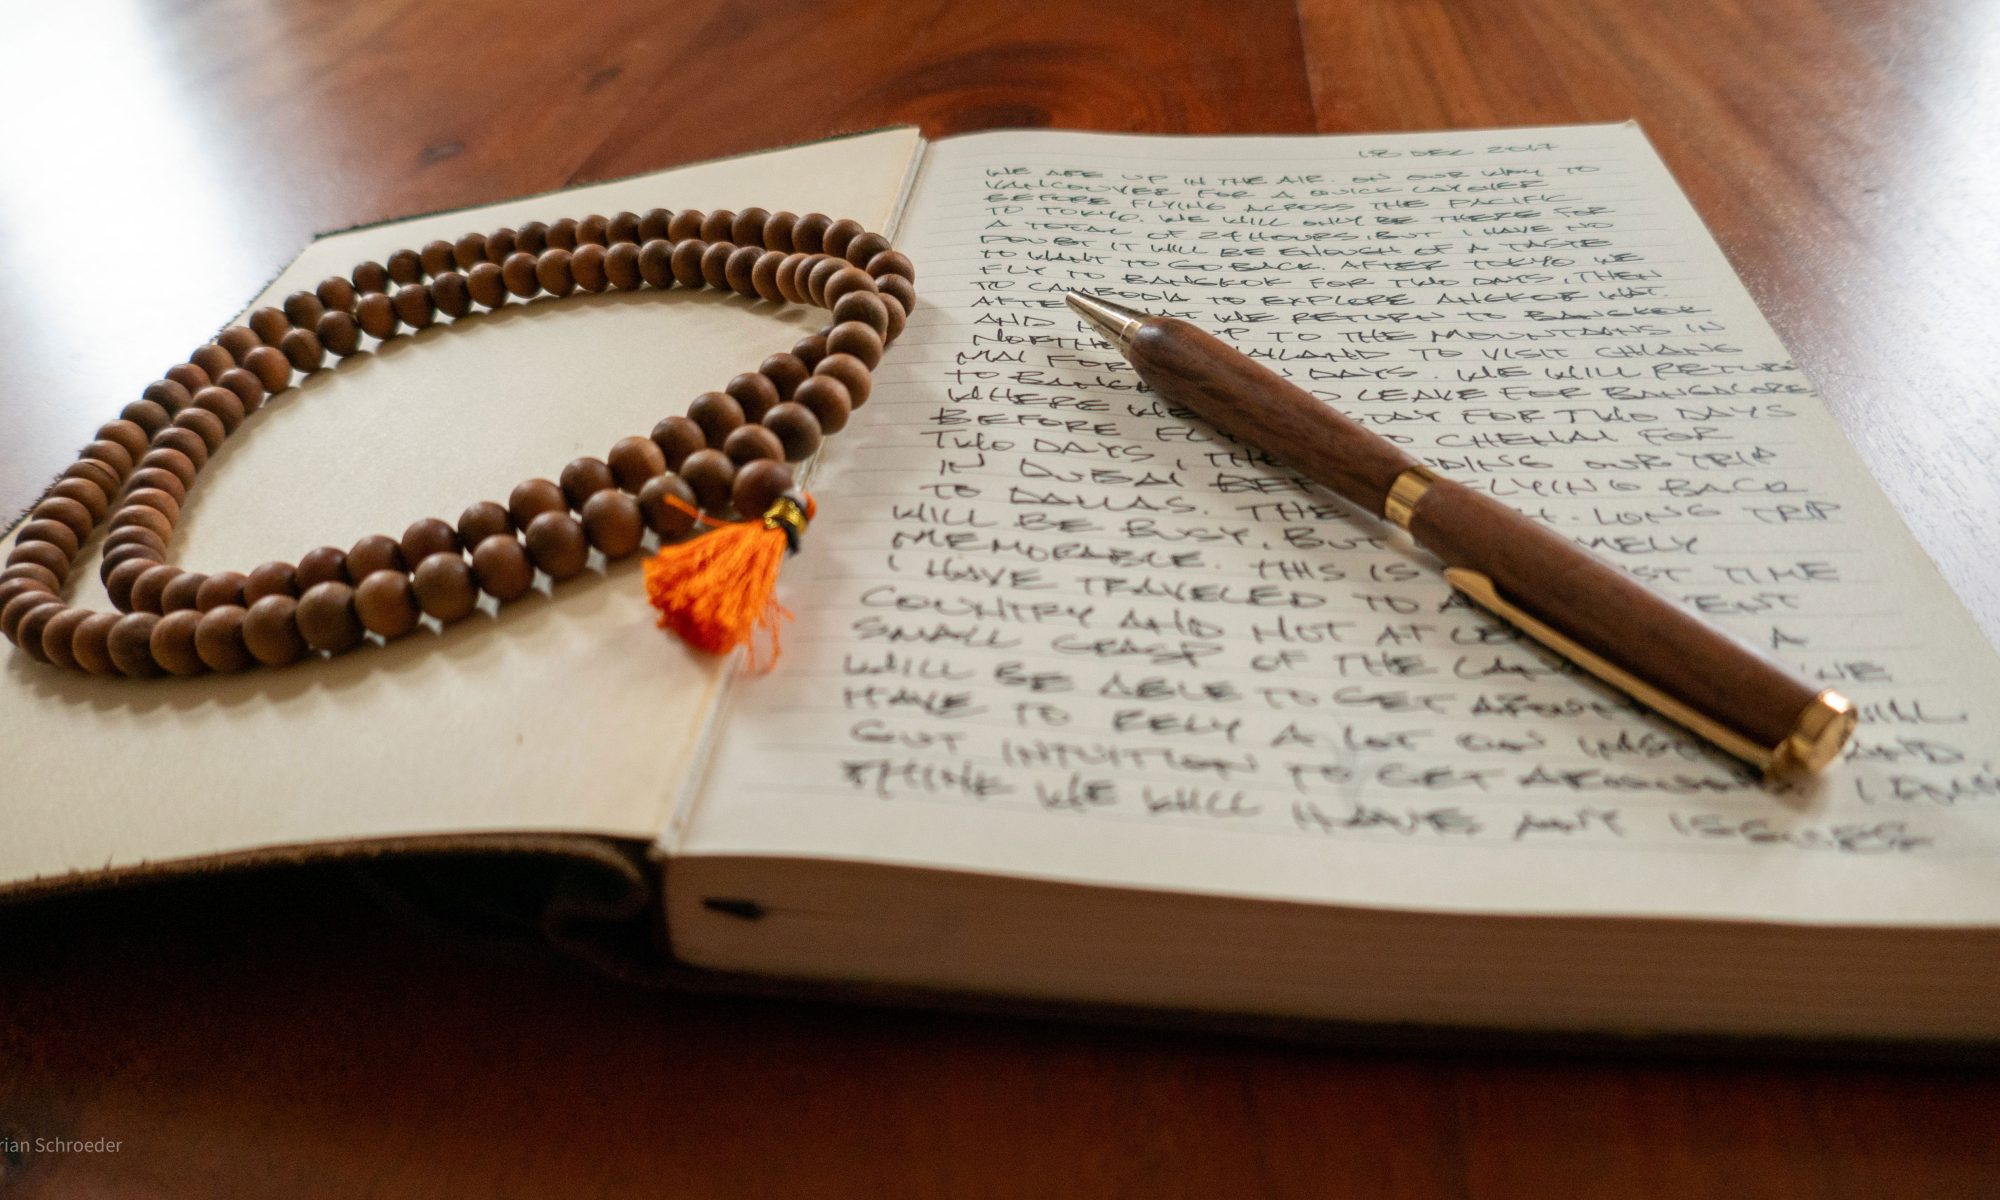 18 DEC 2017
WE ARE UP IN THE AIR ON OUR WAY TO
VANCOUVER FOR A QUICK LAYOVER
BEFORE FLYING ACROSS THE PACIFIC
TO TOKYO. WE WILL ONLY BE THERE FOR
A TOTAL OF 24 HOURS, BUT I HAVE NO
DOUBT IT WILL BE ENOUGH OF A TASTE
TO WANT TO GO BACK. AFTER TOKYO WE
FLY TO BANGKOK FOR TWO DAYS, THEN
TO CAMBODIA TO EXPLORE ANGKOR WAT.
AFTER WE RETURN TO BANGKOK
AND UP TO THE MOUNTAINS IN
TO VISIT CHIANG
MAI FOR DAYS. WE WILL RETURN
TO LEAVE FOR BANGALORE,
WHERE WE STAY FOR TWO DAYS
BEFORE TO CHENAI FOR
TWO DAYS, OUR TRIP
IN DUBAI FLYING BACK
TO DALLAS. LONG TRIP
WILL BE BUSY, BUT
MEMORABLE. THIS IS TIME
I HAVE TRAVELED TO A
COUNTRY AND NOT AT A
SMALL GRASP OF THE WE
WILL BE ABLE TO GET WILL
HAVE TO RELY A LOT ON AND
GUT INTUITION TO GET I
THINK WE WILL HAVE ANY ISSUES
rian Schroeder